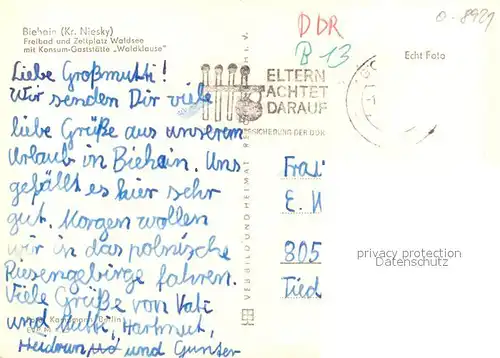 Biehain (Kr. Niesky)
Freibad und Zeltplatz Waldsee
mit Konsum-Gaststätte „Waldklause"
DDR
B 13
o-8921
Echt Foto
ELTERN
ACHTET
DARAUF
Liebe Großmutti!
Wir senden Dir viele
liebe Grüße aus unserem
Urlaub in Biehain. Uns
gefällt es hier sehr
gut. Morgen wollen
wir in das polnische
Riesengebirge fahren.
Viele Grüße von Vati
und Mutti, Hartmut,
Heidrun und Gunter
VEB BILD UND HEIMAT
Frau
E. H
805
Tied
privacy protection
Datenschutz